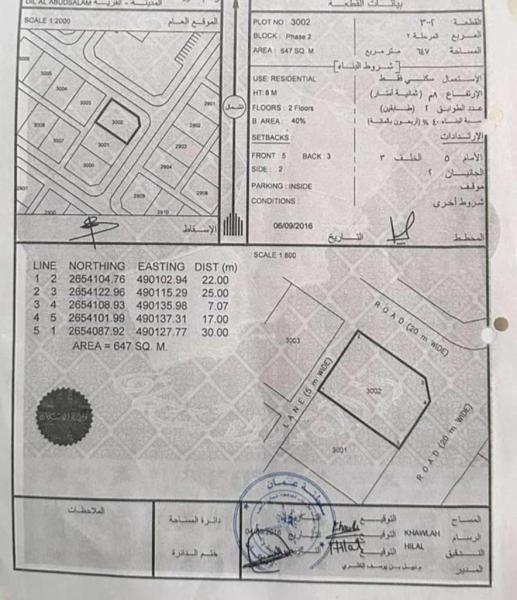 DIL AL ABUDSALAM
SCALE 1:2000
الموقع العام
3005
3004
3003
3002
3006
3001
3000
2901
2902
2903
2904
2905
2906
2910
الشمال
الإسقاط
بيانات القطعة
PLOT NO 3002
القطعة ٣٠٠٢
BLOCK : Phase 2
المربع المرحلة ٢
AREA : 647 SQ. M
المساحة ٦٤٧ متر مربع
[ شروط البناء ]
USE: RESIDENTIAL
الاستعمال سكني فقط
HT: 8 M
الإرتفاع ٨م (ثمانية أمتار)
FLOORS : 2 Floors
عدد الطوابق ٢ (طابقين)
B AREA : 40%
نسبة البناء ٤٠ % (أربعون بالمائة)
SETBACKS:
الإرتدادات
FRONT : 5 BACK : 3
الأمام ٥ الخلف ٣
SIDE : 2
الجانبان ٢
PARKING : INSIDE
موقف
CONDITIONS
شروط أخرى
06/09/2016
التاريخ
المخطط
SCALE 1:800
LINE NORTHING EASTING DIST (m)
1 2 2654104.76 490102.94 22.00
2 3 2654122.96 490115.29 25.00
3 4 2654108.93 490135.98 7.07
4 5 2654101.99 490137.31 17.00
5 1 2654087.92 490127.77 30.00
AREA = 647 SQ. M.
3003
ROAD (20 m. WIDE)
LANE (5 m WIDE)
3002
3001
ROAD (20 m. WIDE)
ملاحظات
دائرة المساحة
ختم الدائرة
سلطنة عمان
التاريخ
التوقيع
المساح
KHAWLAH
الرسام
HILAL
التدقيق
المدير